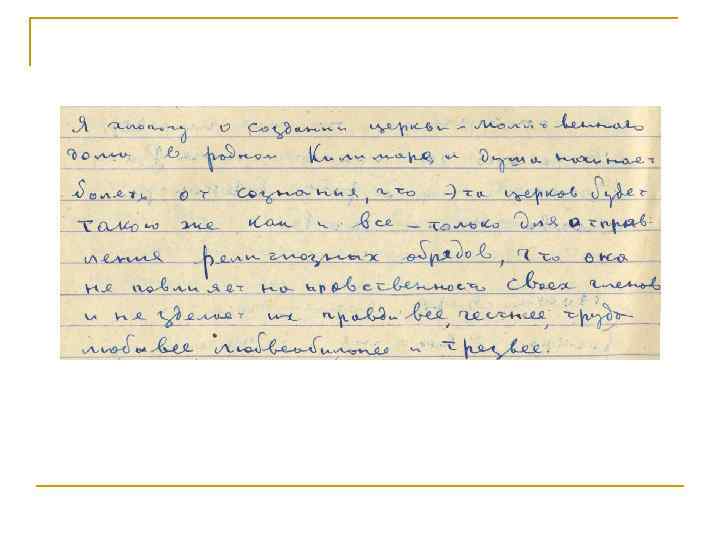 Я хлопочу о создании церкви - молитвенного
дома в родном Килимаре и душа начинает
болеть от сознания, что эта церков будет
такою же как и все - только для отправ-
ления религиозных обрядов, что она
не повлияет на нравственность своех членов
и не зделает их правдивее, честнее, трудо
любавее любвеобильнее и трезвее.